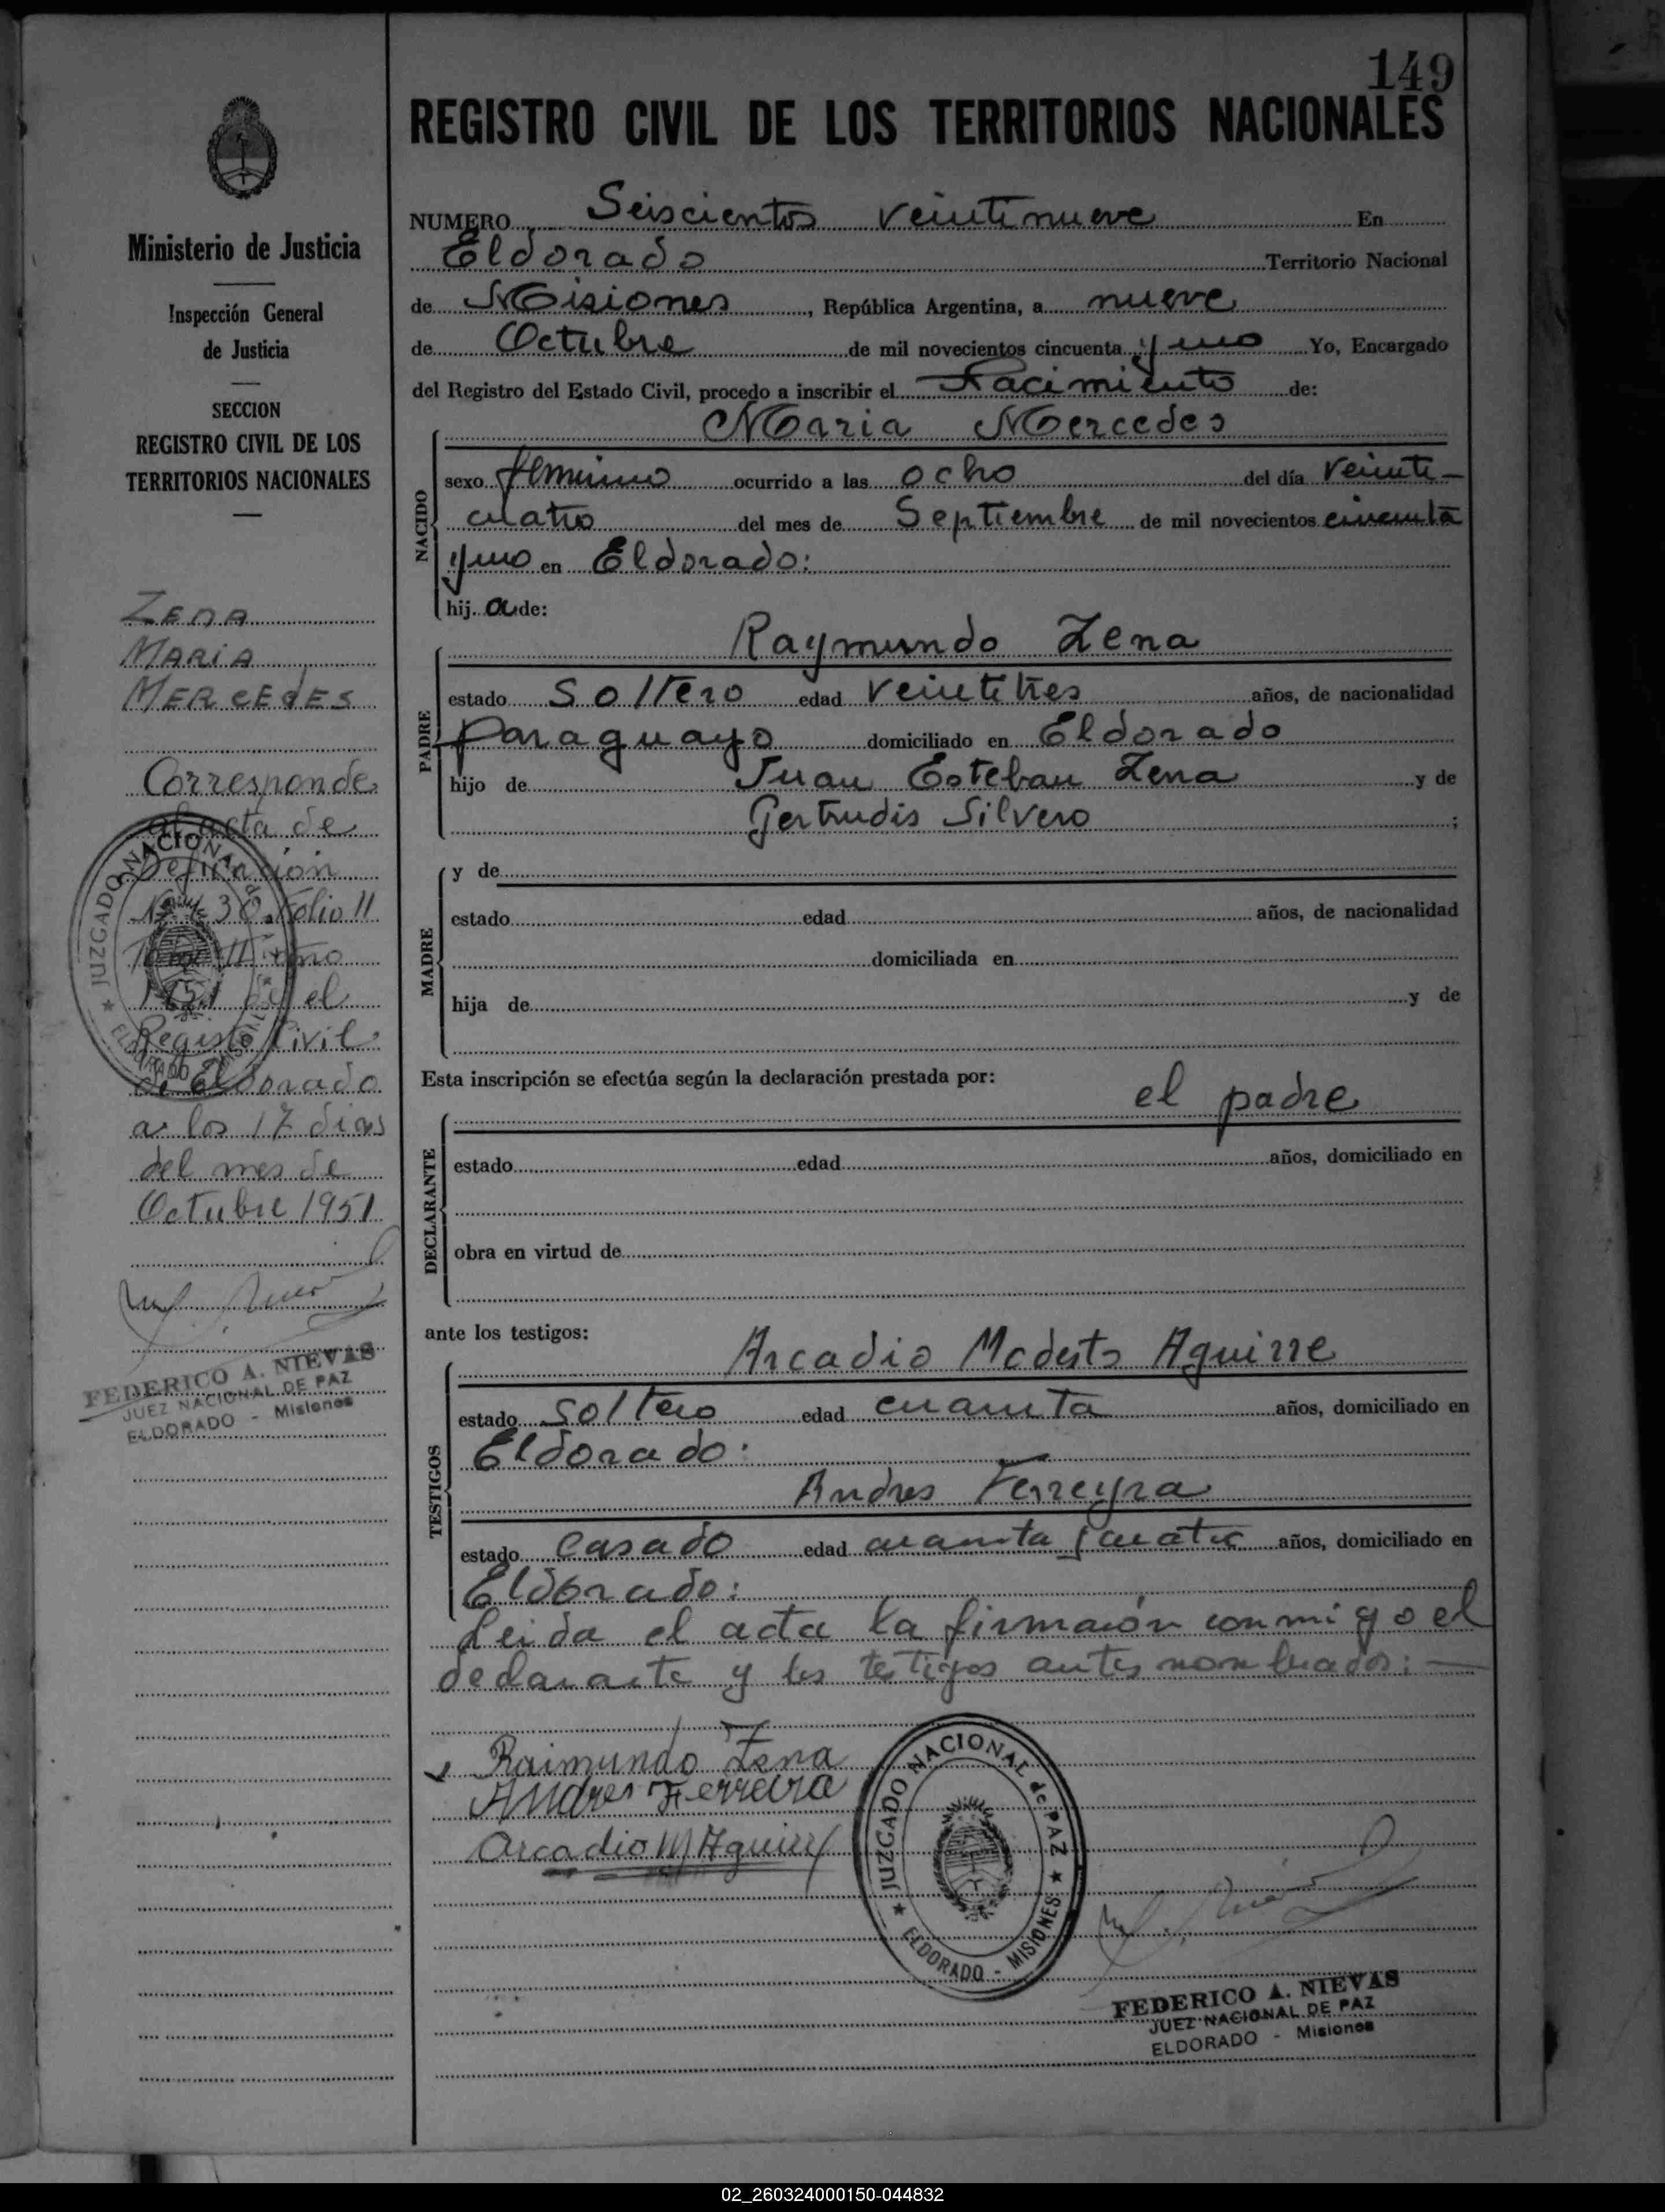 149
REGISTRO CIVIL DE LOS TERRITORIOS NACIONALES
Ministerio de Justicia
Inspección General
de Justicia
SECCION
REGISTRO CIVIL DE LOS
TERRITORIOS NACIONALES
ZENA
MARIA
MERCEDES
Corresponde
al acta de
Defunción
30 Folio 11
1951 en el
Registro Civil
de Eldorado
a los 17 dias
del mes de
Octubre 1951
FEDERICO A. NIEVAS
JUEZ NACIONAL DE PAZ
ELDORADO - Misiones
NUMERO Seiscientos veintinueve En
Eldorado Territorio Nacional
de Misiones, República Argentina, a nueve
de Octubre de mil novecientos cincuenta y uno Yo, Encargado
del Registro del Estado Civil, procedo a inscribir el Nacimiento de:
NACIDO
Maria Mercedes
sexo femenino ocurrido a las ocho del día veinti-
cuatro del mes de Septiembre de mil novecientos cincuenta
y uno en Eldorado:
hij a de:
PADRE
Raymundo Zena
estado soltero edad veintitres años, de nacionalidad
paraguayo domiciliado en Eldorado
hijo de Juan Esteban Zena y de
Gertrudis Silvero ;
MADRE
y de
estado edad años, de nacionalidad
domiciliada en
hija de y de
Esta inscripción se efectúa según la declaración prestada por:
DECLARANTE
el padre
estado edad años, domiciliado en
obra en virtud de
ante los testigos:
TESTIGOS
Arcadio Modesto Aguirre
estado soltero edad cuarenta años, domiciliado en
Eldorado:
Andres Ferreyra
estado casado edad cuarenta y cuatro años, domiciliado en
Eldorado:
Leida el acta la firmarón conmigo el
declarante y los testigos antes nombrados:
Raimundo Zena
Andres Ferreira
Arcadio M Aguirre
JUZGADO NACIONAL de PAZ
ELDORADO - MISIONES
FEDERICO A. NIEVAS
JUEZ NACIONAL DE PAZ
ELDORADO - Misiones
02_260324000150-044832